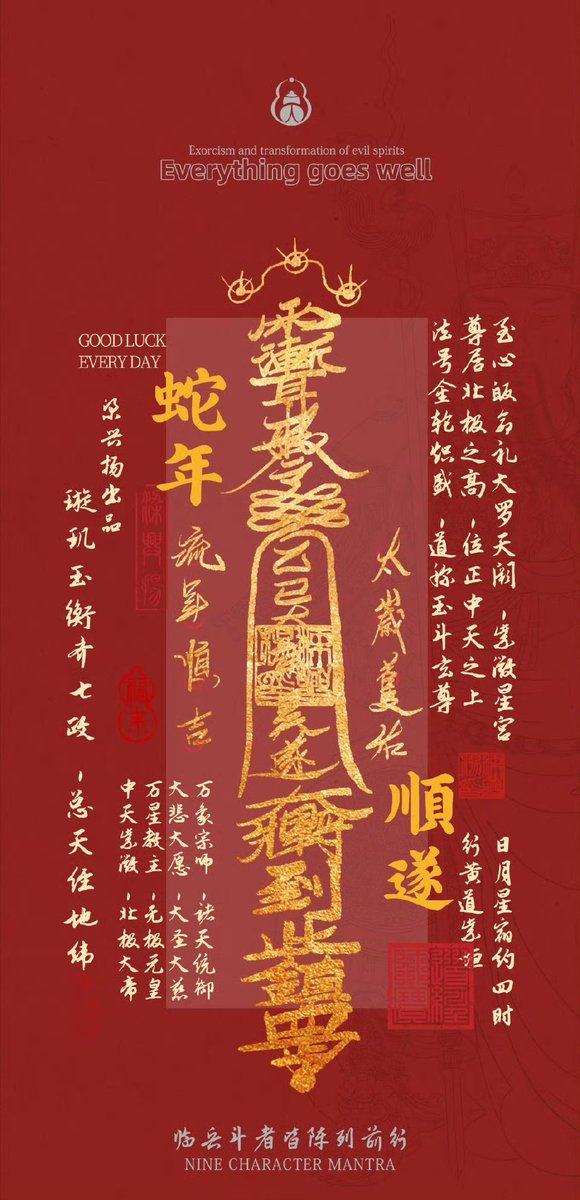 Exorcism and transformation of evil spirits
Everything goes well
GOOD LUCK
EVERY DAY
至心皈命礼大罗天阙-紫微星宫
尊居北极之高-位正中天之上
法号金轮炽盛-道称玉斗玄尊
日月星宿约四时
行黄道紫垣
太歲佑
順遂
乙巳太
到此
蛇年
流年吉
梁兴扬出品
璇玑玉衡齐七政-总天经地纬
万象宗师-诸天统御
大悲大愿-大圣大慈
万星教主-无极元皇
中天紫微-北极大帝
临兵斗者皆阵列前行
NINE CHARACTER MANTRA